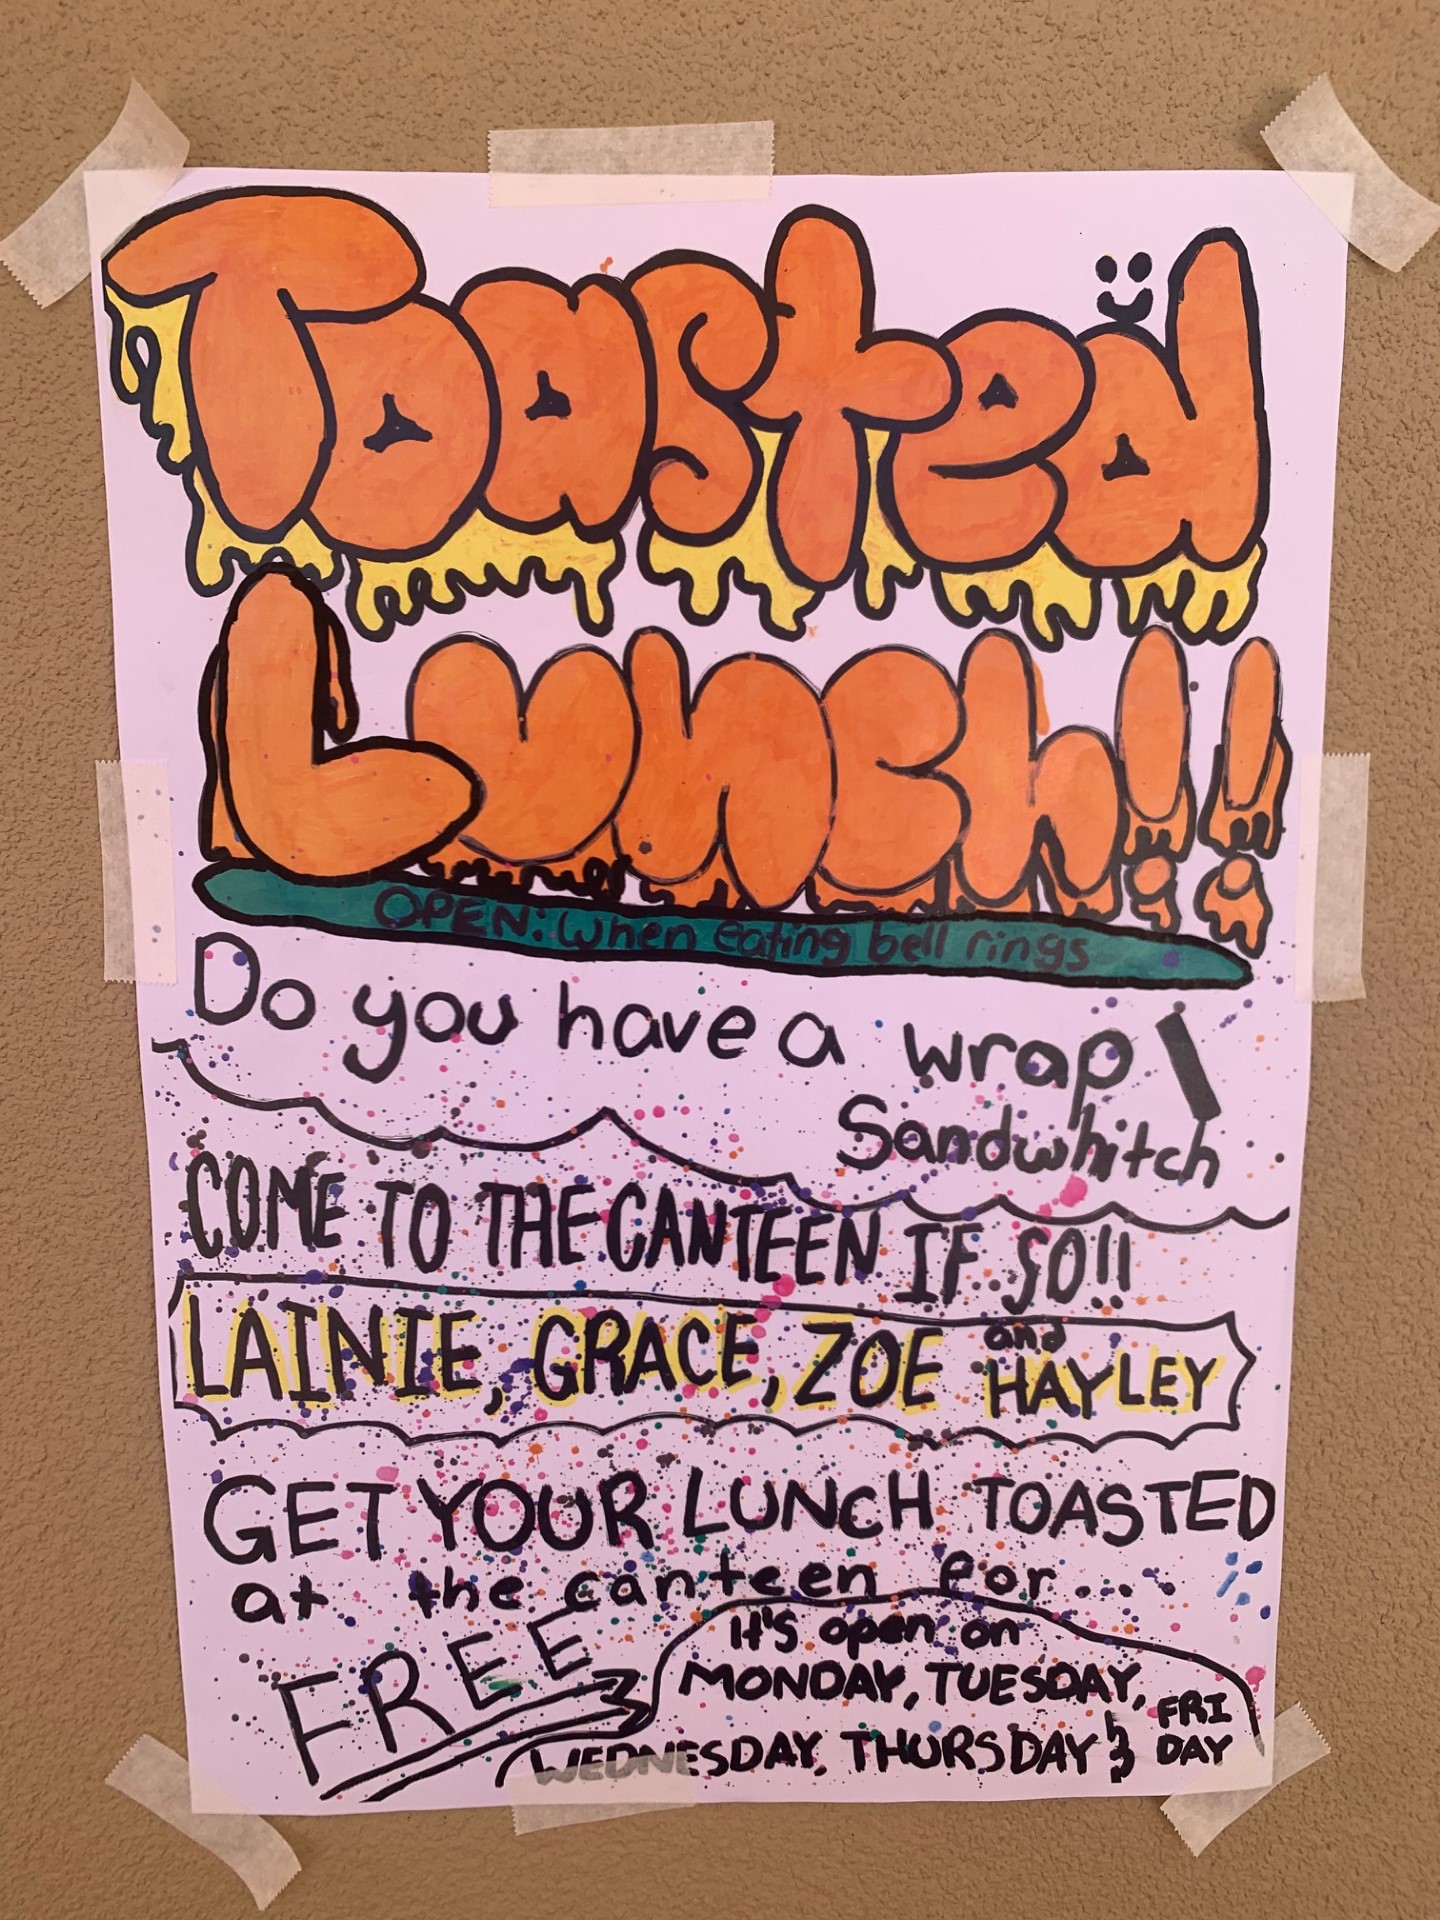 Toasted
Lunch!!
OPEN: When eating bell rings
Do you have a wrap \
Sandwhitch
COME TO THE CANTEEN IF SO!!
LAINIE, GRACE, ZOE and HAYLEY
GET YOUR LUNCH TOASTED
at the canteen for...
FREE
It's open on
MONDAY, TUESDAY,
WEDNESDAY, THURSDAY & FRI
DAY